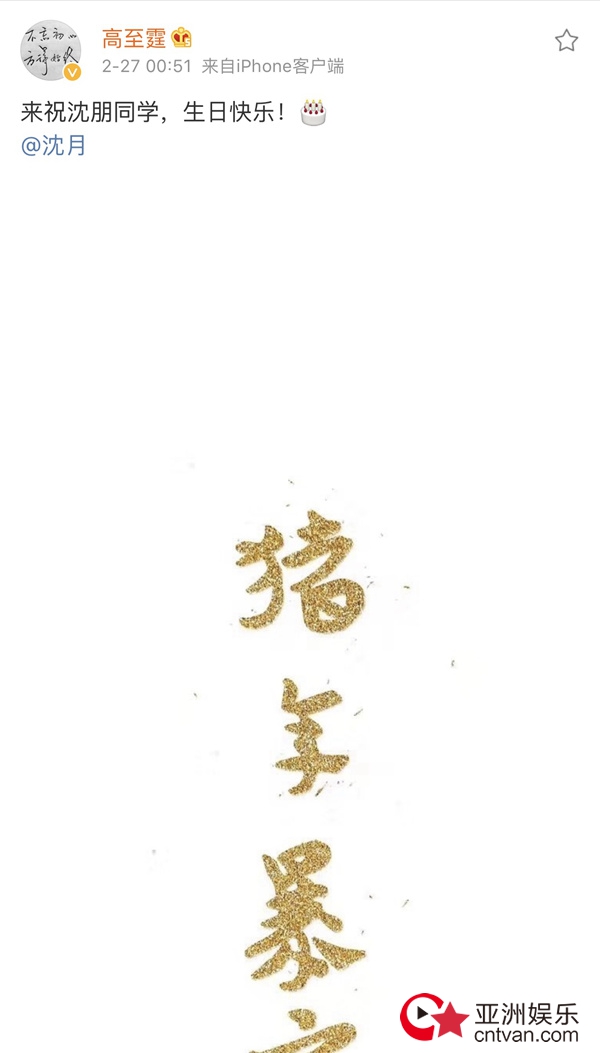 不忘初心
方得始终
高至霆
2-27 00:51 来自iPhone客户端
来祝沈朋同学，生日快乐！
@沈月
猪
年
暴
亚洲娱乐
cntvan.com